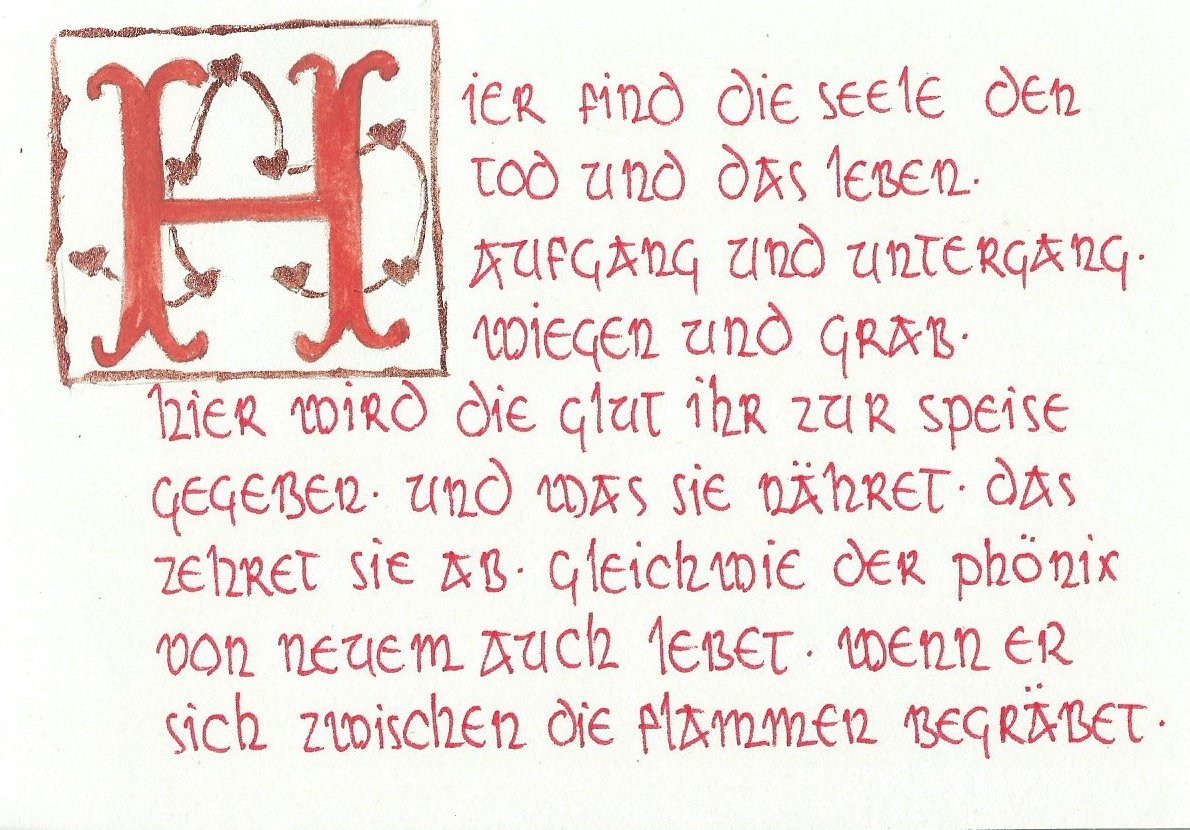 Hier find die seele den
tod und das leben.
aufgang und untergang.
wiegen und grab.
hier wird die glut ihr zur speise
gegeben. und was sie nähret. das
zehret sie ab. gleichwie der phönix
von neuem auch lebet. wenn er
sich zwischen die flammen begräbet.